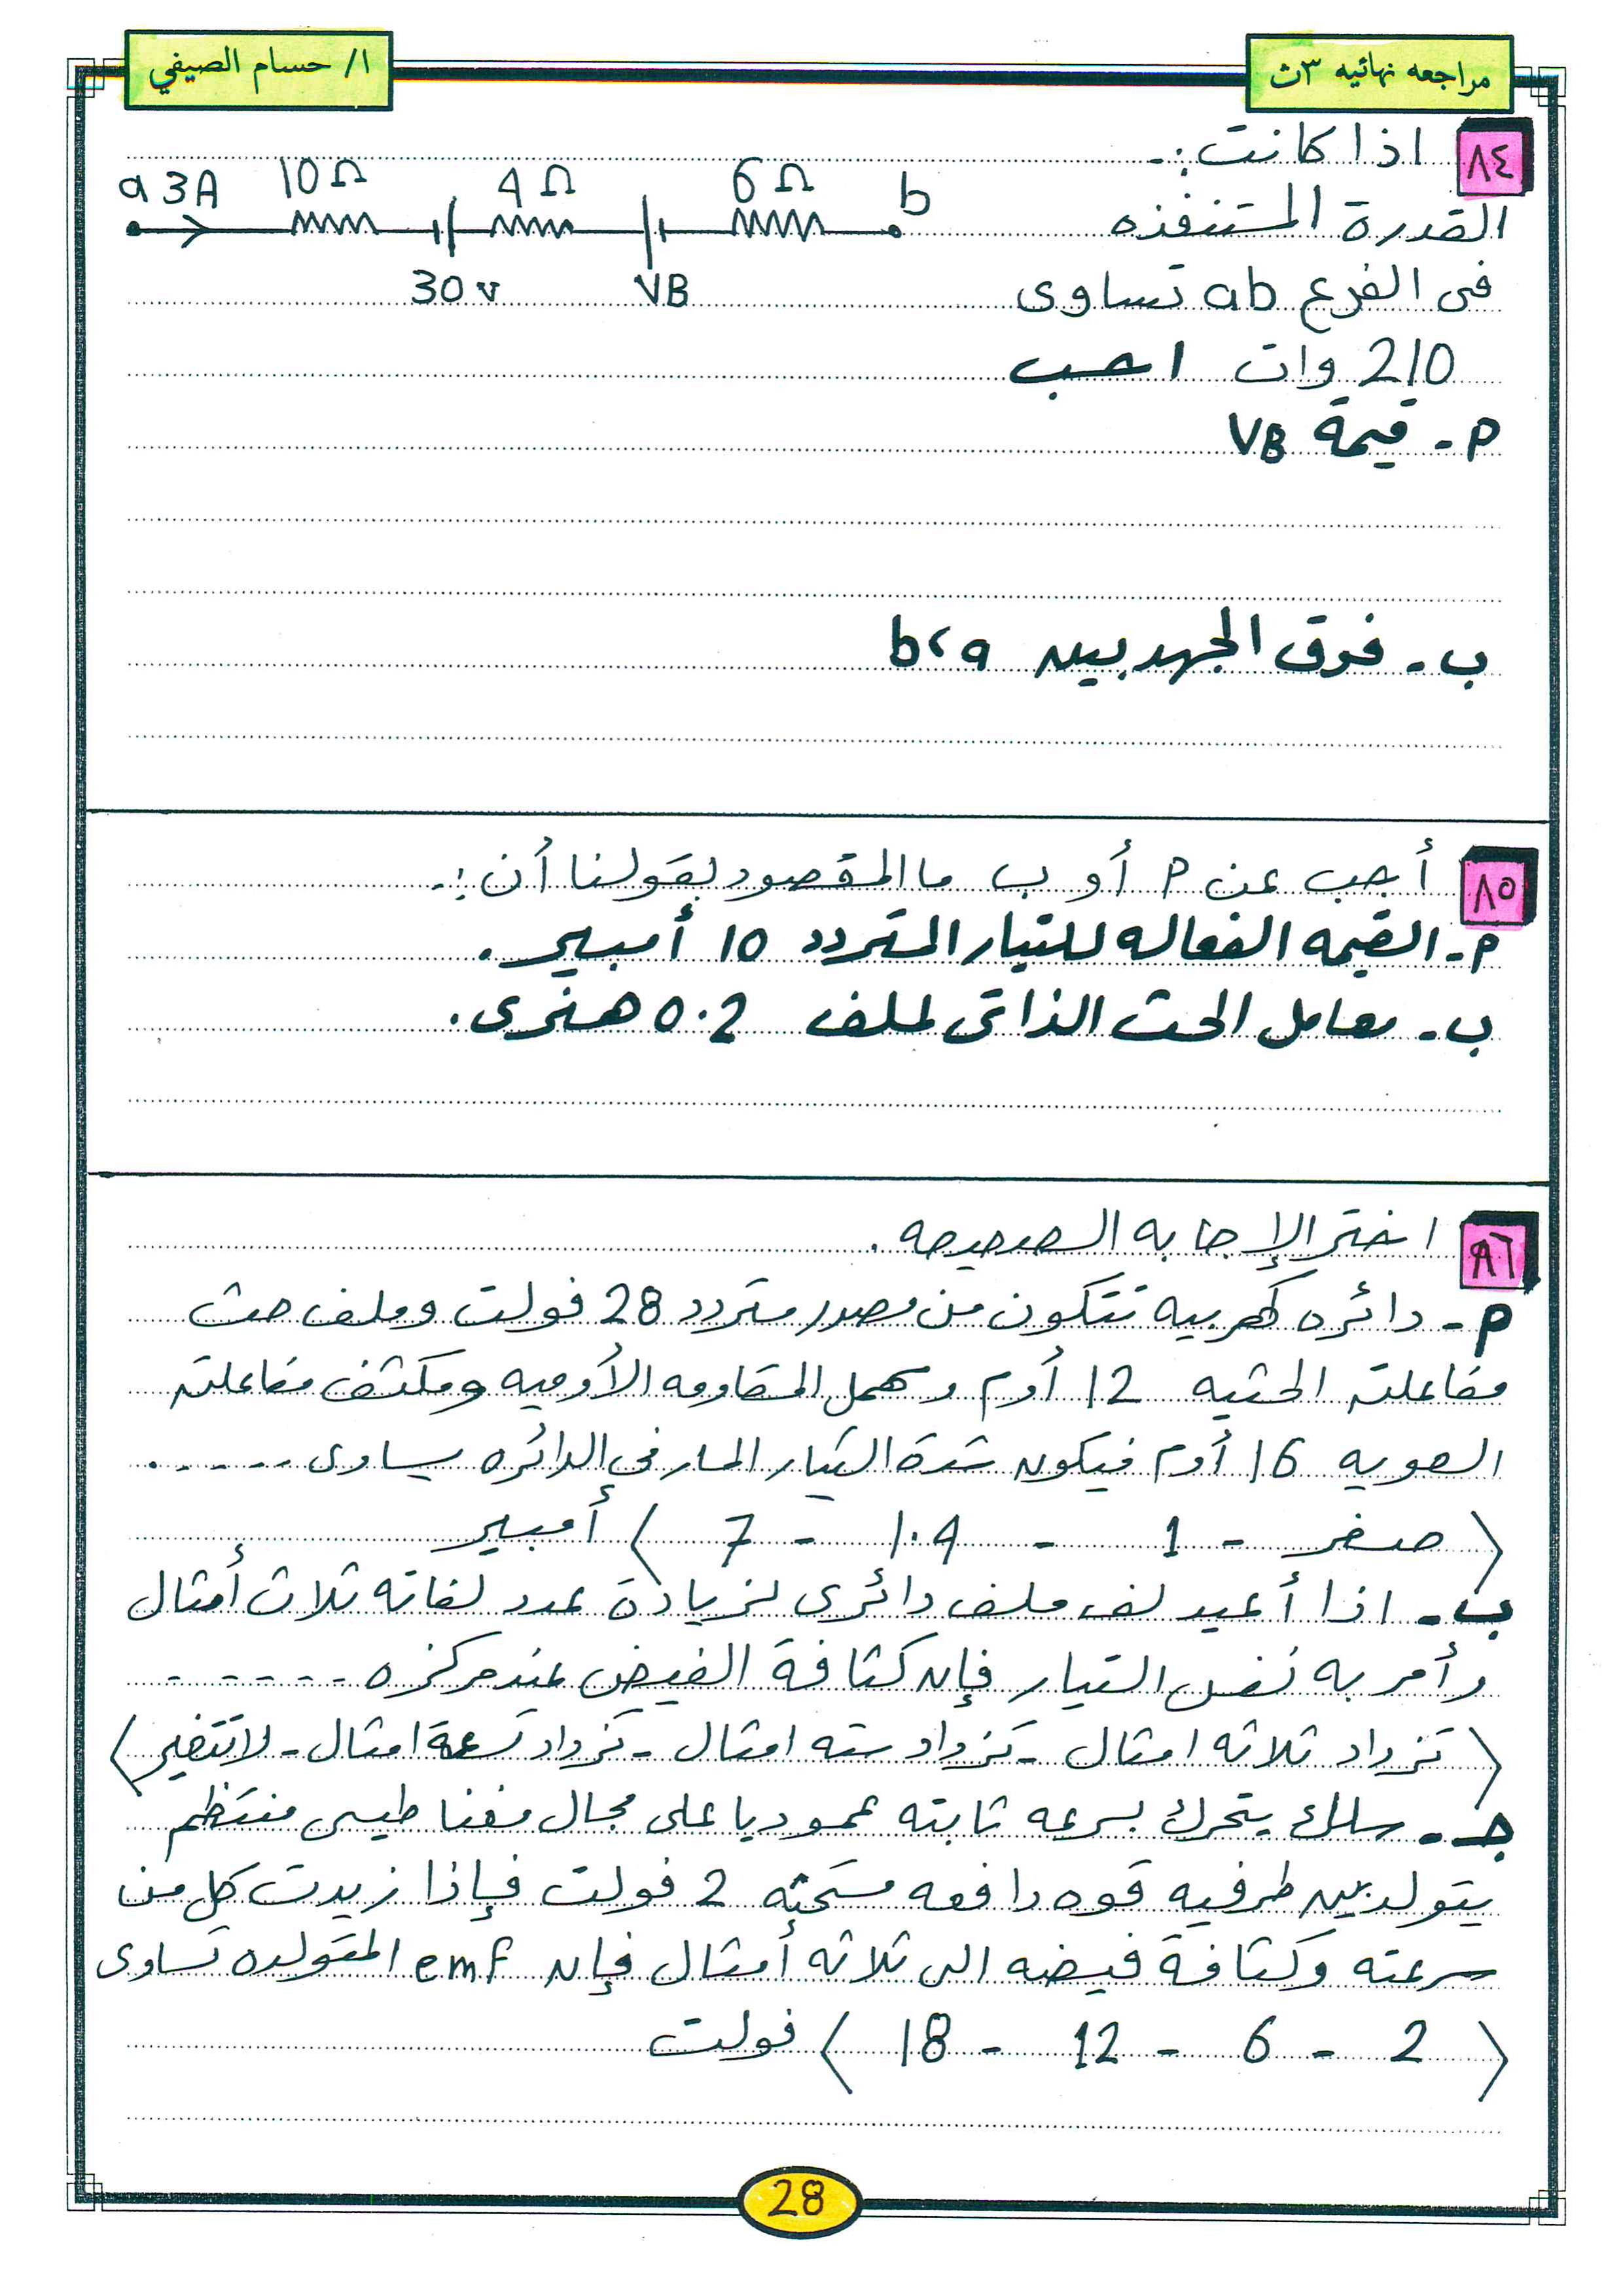 مراجعه نهائيه ٣ث
ا/ حسام الصيفي
٨٤ اذا كانت :-
a 3A 10Ω 4Ω 6Ω b
القدرة المستنفذه
30v VB
فى الفرع ab تساوى
210 وات احسب
P - قيمة VB
ب - فرق الجهد بين b، a
٨٥ أجب عن P أو ب ما المقصود بقولنا أن :-
P - القيمه الفعاله للتيار المتردد 10 أمبير .
ب - معامل الحث الذاتى لملف 0.2 هنرى .
٨٦ اختر الإجابه الصحيحه .
P - دائره كهربيه تتكون من مصدر متردد 28 فولت وملف حث
مفاعلته الحثيه 12 أوم ومهمل المقاومه الأوميه ومكثف مفاعلته
السعويه 16 أوم فيكون شدة التيار المار في الدائره يساوى ------
( صفر - 1 - 1.4 - 7 ) أمبير
ب - اذا أعيد لف ملف دائرى لزيادة عدد لفاته ثلاث أمثال
وأمر به نفس التيار فإن كثافة الفيض عند مركزه -------
( تزداد ثلاثه امثال - تزداد سته امثال - تزداد تسعة امثال - لا تتغير )
جـ - سلك يتحرك بسرعه ثابته عموديا على مجال مغناطيسى منتظم
يتولد بين طرفيه قوه دافعه مستحثه 2 فولت فإذا زيدت كل من
سرعته وكثافة فيضه الى ثلاثه أمثال فإن emf المتولده تساوى
( 2 - 6 - 12 - 18 ) فولت
28